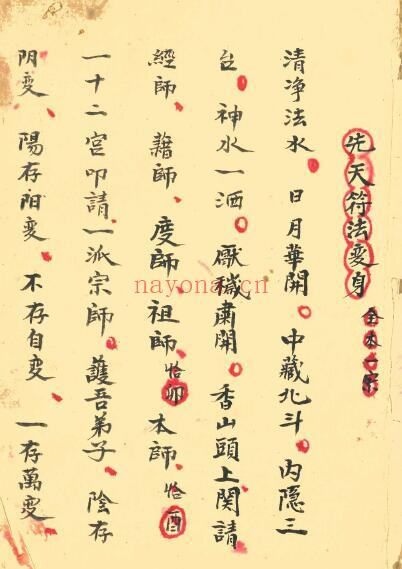 先天符法变身
清净法水 日月華開 中藏北斗 内隐三
台 神水一洒 厭穢肅開 香山頭上関請
經師 籍師 度師 祖師 恰卯 本師 恰酉
一十二宮叩請一派宗師 護吾弟子 陰存
阴变 陽存阳变 不存自变 一存萬变
nayona.cn